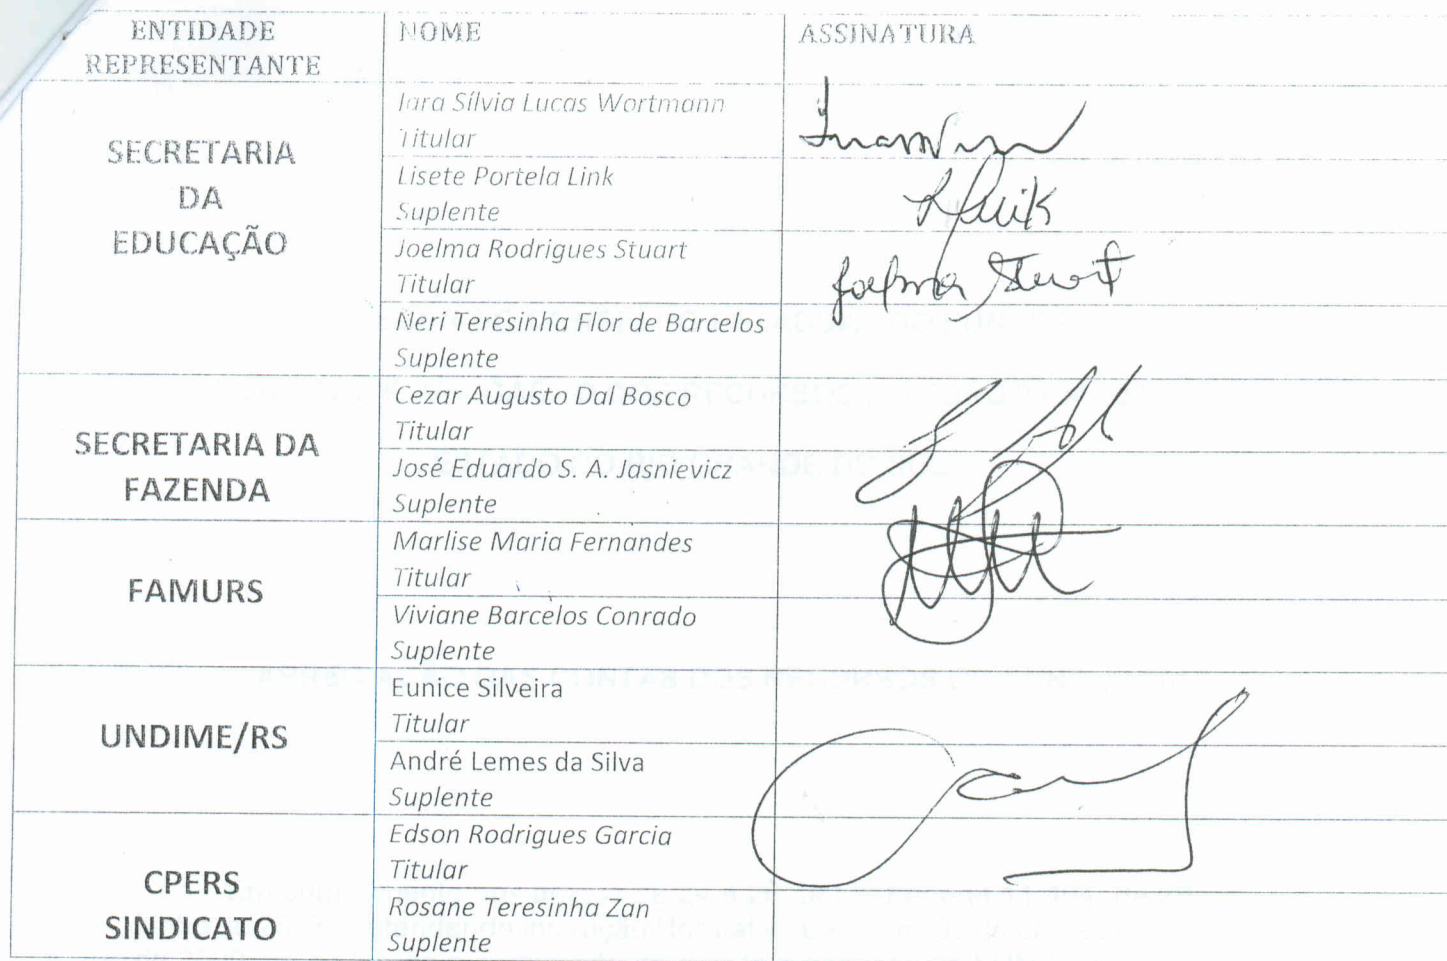 ENTIDADE
REPRESENTANTE
NOME
ASSINATURA
SECRETARIA
DA
EDUCAÇÃO
Iara Sílvia Lucas Wortmann
Titular
Lisete Portela Link
Suplente
Joelma Rodrigues Stuart
Titular
Joelma Stuart
Neri Teresinha Flor de Barcelos
Suplente
SECRETARIA DA
FAZENDA
Cezar Augusto Dal Bosco
Titular
José Eduardo S. A. Jasnievicz
Suplente
FAMURS
Marlise Maria Fernandes
Titular
Viviane Barcelos Conrado
Suplente
UNDIME/RS
Eunice Silveira
Titular
André Lemes da Silva
Suplente
CPERS
SINDICATO
Edson Rodrigues Garcia
Titular
Rosane Teresinha Zan
Suplente